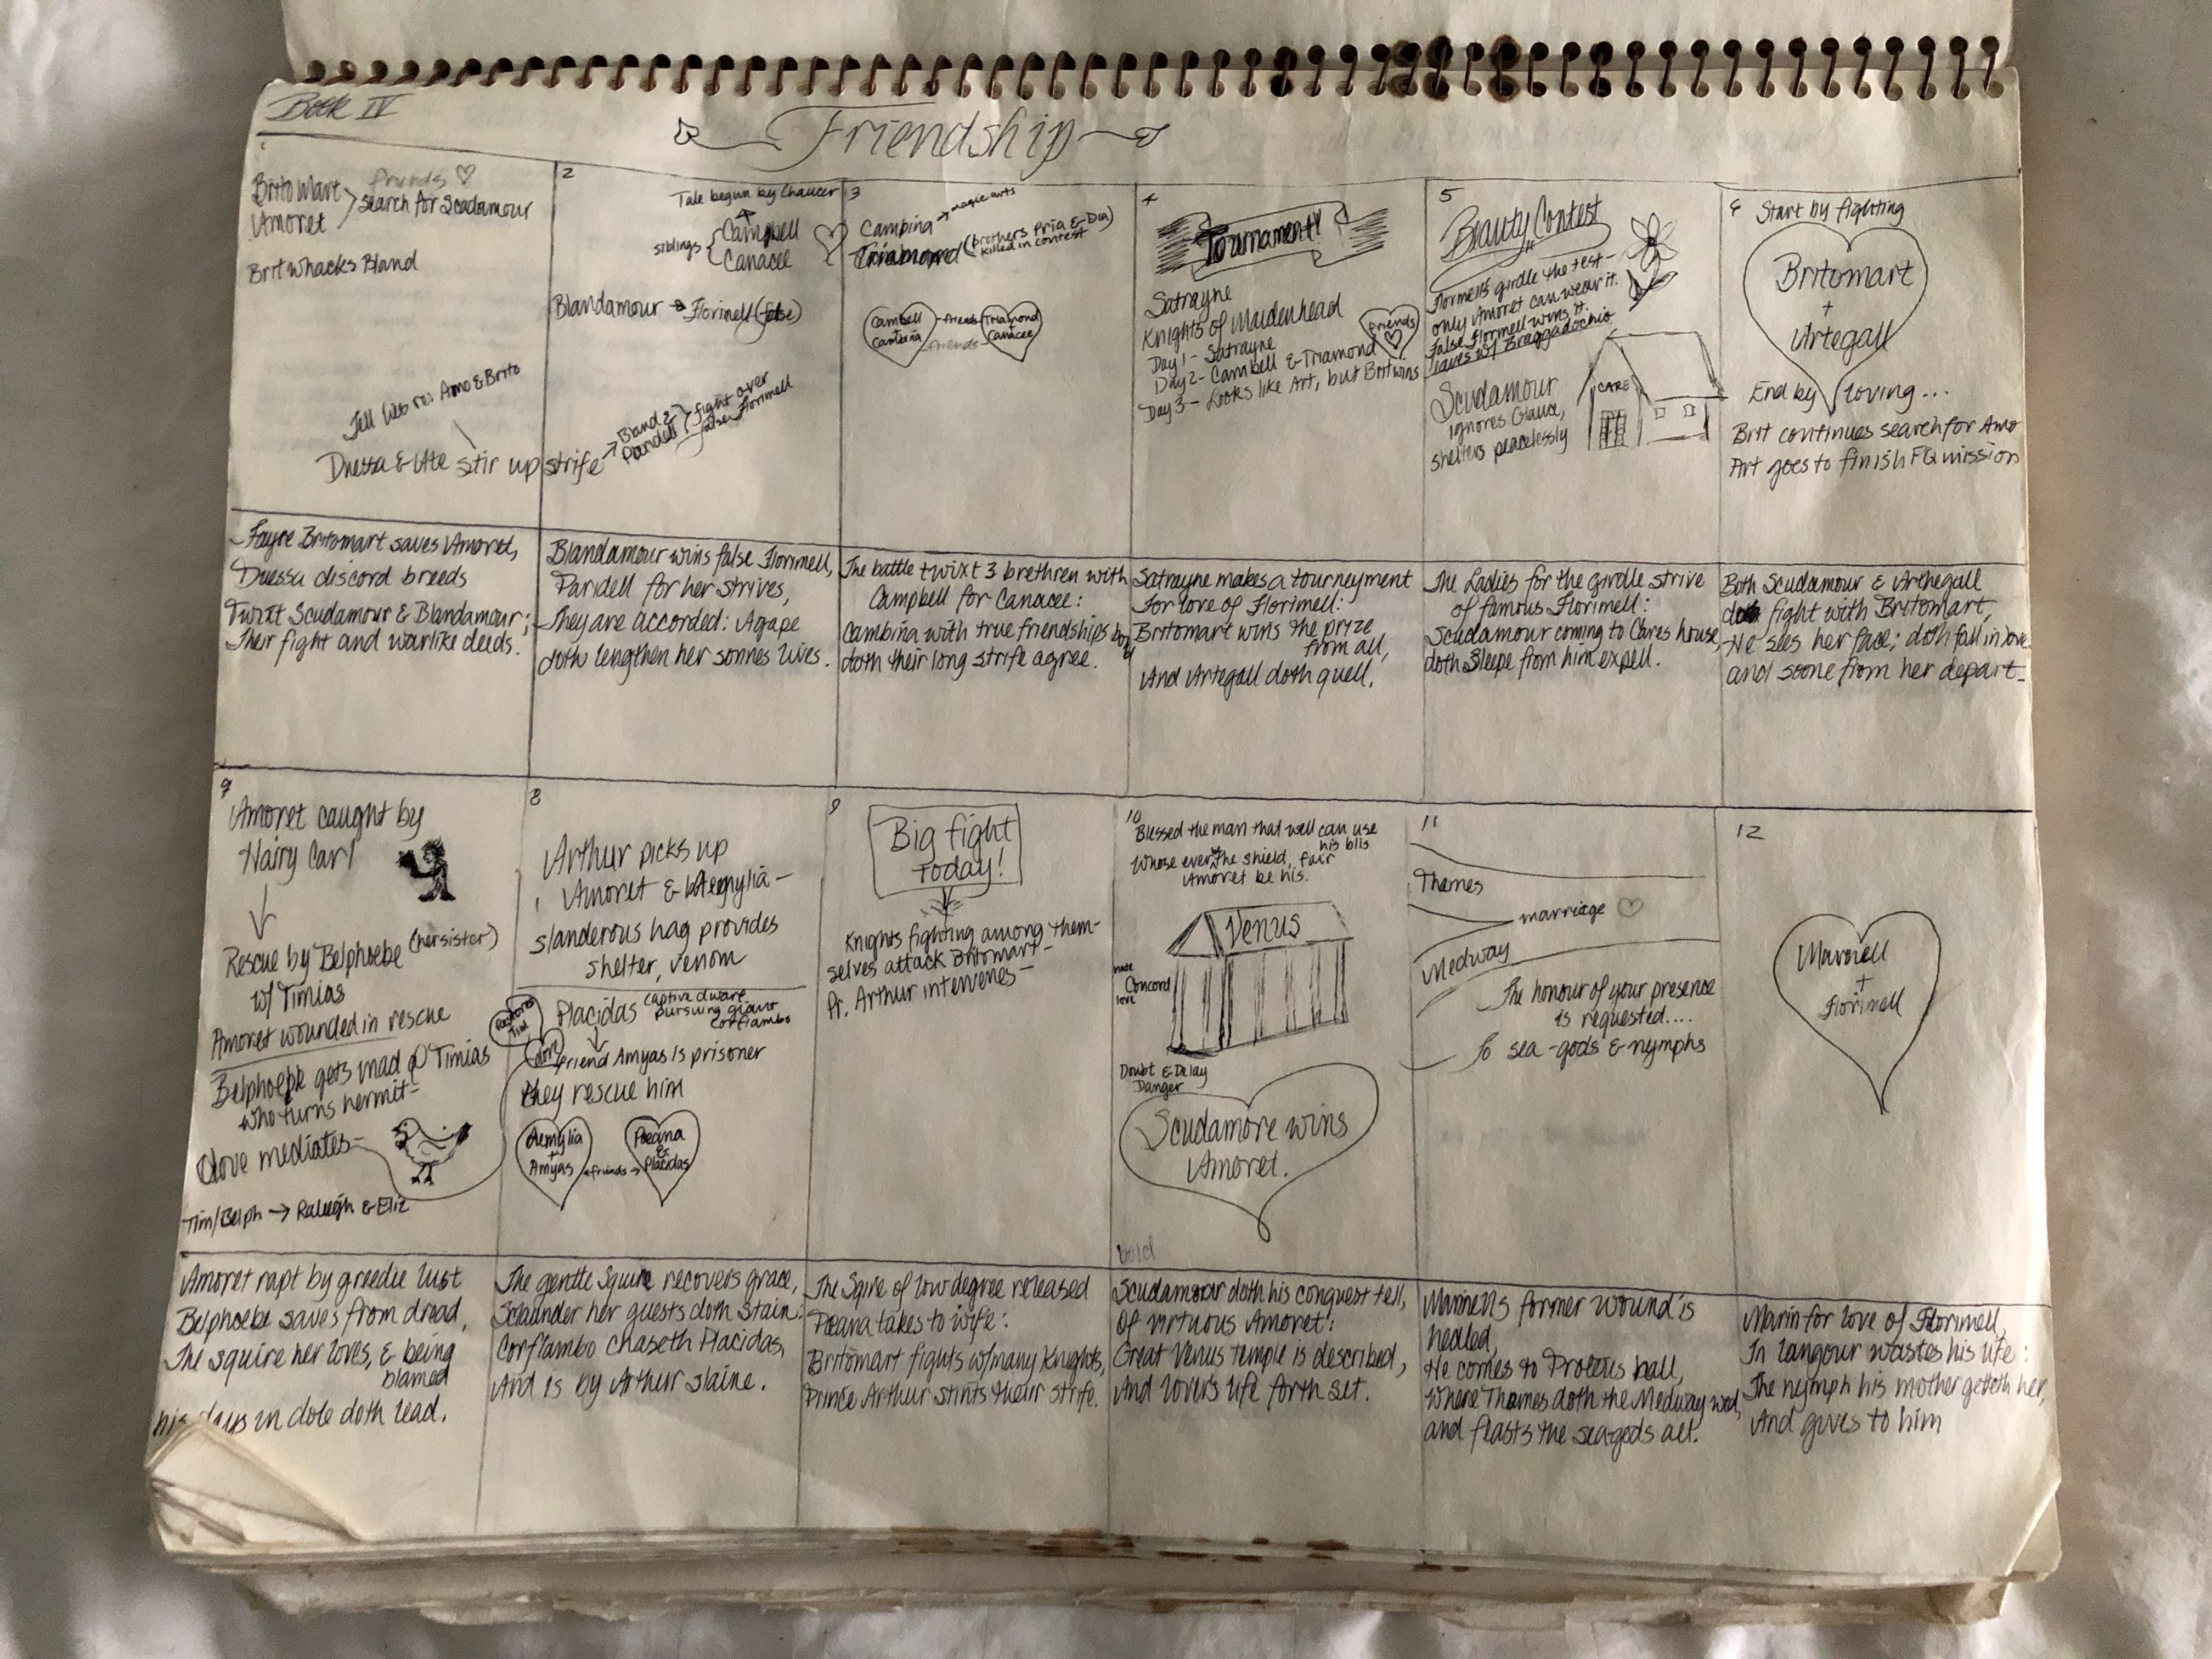 Book IV
Friendship
1
Britomart
Amoret
friends
search for Scudamour
Brit whacks Bland
Duessa & Ate stir up strife
Fayre Britomart saves Amoret,
Duessa discord breeds
Twixt Scudamour & Blandamour;
Their fight and warlike deeds.
2
Tale begun by Chaucer
siblings
Campbell
Canacee
Blandamour → Florimell (false)
Bland &
Paridell
fight over
false Florimell
Blandamour wins false Florimell,
Paridell for her strives,
They are accorded: Agape
doth lengthen her sonnes lives.
3
Cambina → magic arts
Triamond (brothers Pria & Dia)
killed in contest
Cambell
Cambina
friends
friends
Triamond
Canacee
The battle twixt 3 brethren with
Campbell for Canacee:
Cambina with true friendships bond
doth their long strife agree.
4
Tournament!
Satrayne
Knights of Maidenhead
Day 1 - Satrayne
Day 2 - Cambell & Triamond
friends
Day 3 - Looks like Art, but Brit wins
Satrayne makes a tourneyment
For love of Florimell:
Britomart wins the prize
from all,
And Artegall doth quell.
5
Beauty Contest
Florimell's girdle the test -
only Amoret can wear it.
False Florimell wins it.
leaves w/ Braggadochio
Scudamour
ignores Glauce,
shelters peacelessly
CARE
The Ladies for the girdle strive
of famous Florimell:
Scudamour coming to Cares house,
doth Sleepe from him expell.
6
Start by fighting
Britomart
+
Artegall
End by loving...
Brit continues search for Amo
Art goes to finish FQ mission
Both Scudamour & Arthegall
doth fight with Britomart,
He sees her face; doth fall in love
and soone from her depart.
Amoret caught by
Hairy Carl
Rescue by Belphoebe (her sister)
w/ Timias
Amoret wounded in rescue
Belphoebe gets mad @ Timias
who turns hermit -
Dove mediates -
Tim/Belph → Raleigh & Eliz
Amoret rapt by greedie lust
Belphoebe saves from dread,
The squire her loves, & being
blamed
his days in dole doth lead.
8
Arthur picks up
Amoret & Aemylia -
slanderous hag provides
shelter, venom
Placidas
captive dwarf
pursuing giant
Corflambo
friend Amyas is prisoner
they rescue him
Aemylia
+
Amyas
friends
Poeana
&
Placidas
The gentle Squire recovers grace,
Sclaunder her guests doth stain:
Corflambo chaseth Placidas,
And is by Arthur slaine.
9
Big fight
Today!
Knights fighting among them-
selves attack Britomart -
Pr. Arthur intervenes -
The Sqire of low degree released
Poeana takes to wife:
Britomart fights w/many Knights,
Prince Arthur stints their strife.
10
Blessed the man that well can use
his blis
Whose ever the shield, fair
Amoret be his.
Venus
hate
Concord
love
Doubt & Delay
Danger
Scudamore wins
Amoret.
Scudamour doth his conquest tell,
Of virtuous Amoret:
Great Venus temple is described,
And lovers life forth set.
11
Thames
marriage
Medway
The honour of your presence
is requested....
To sea-gods & nymphs
Marinells former wound is
healed,
He comes to Proteus hall,
Where Thames doth the Medway wed,
and feasts the sea-gods all.
12
Marinell
+
Florimell
Marin for love of Florimell,
In langour wastes his life:
The nymph his mother getteth her,
And gives to him